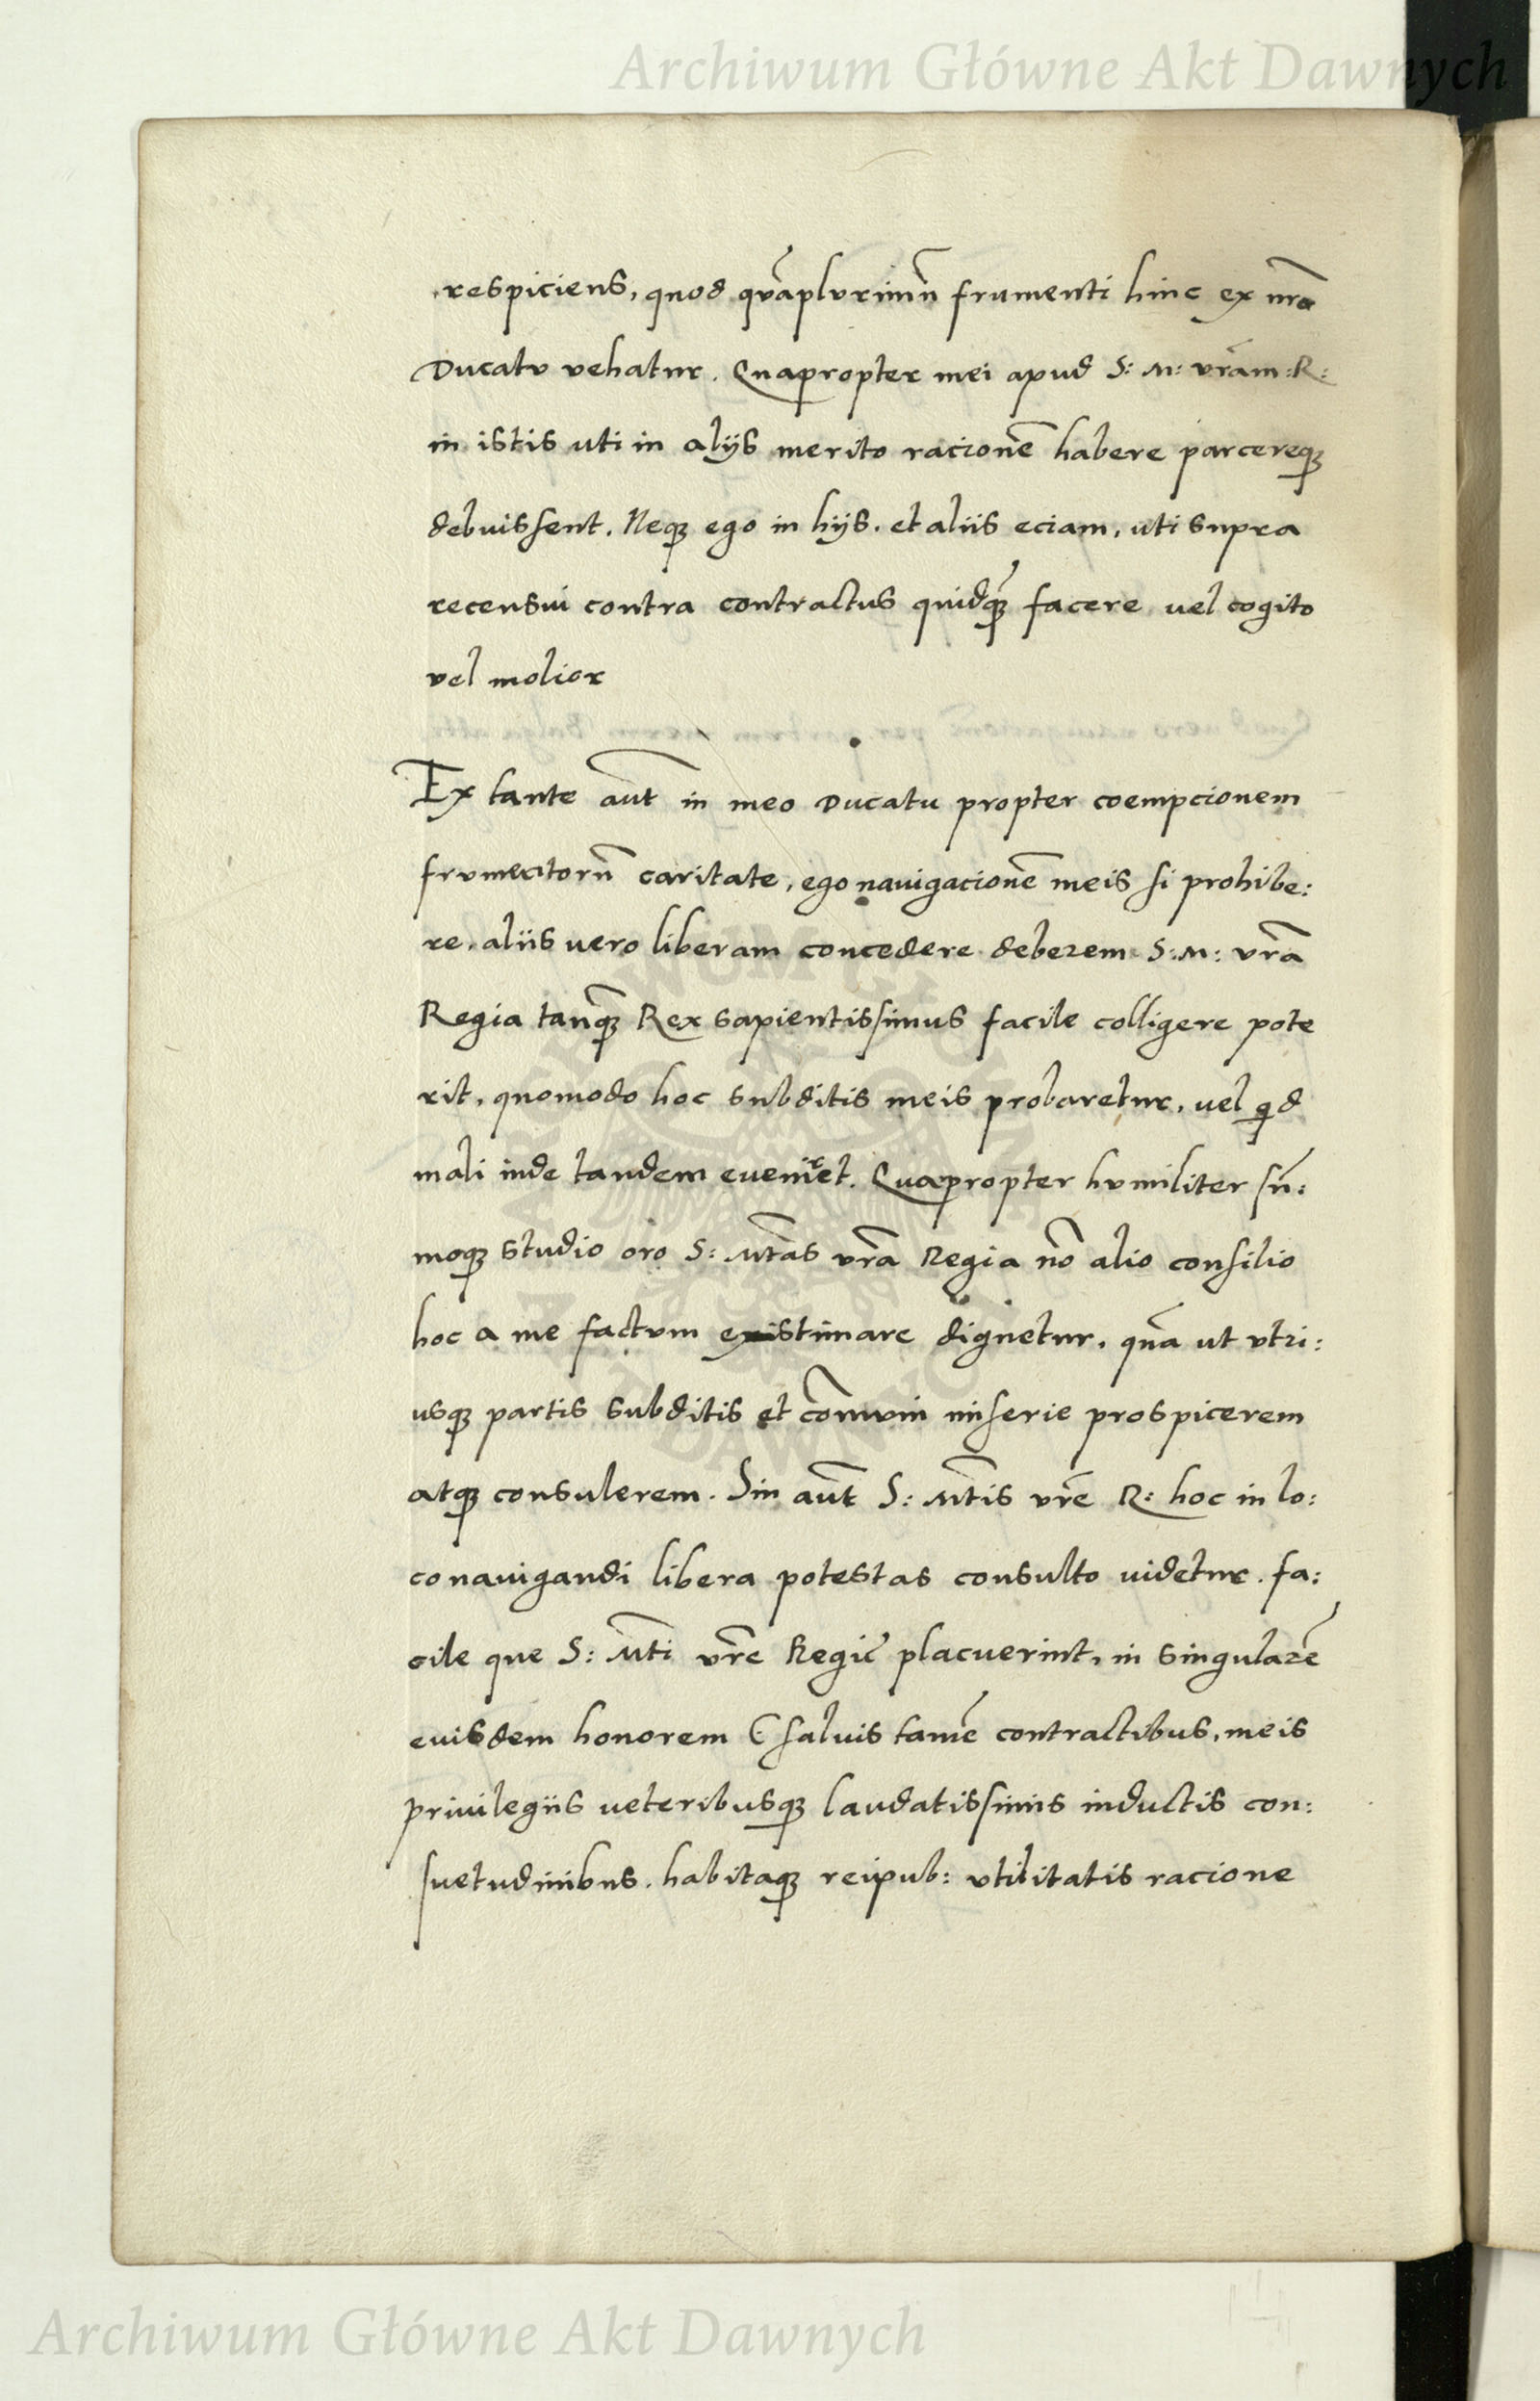 Archiwum Główne Akt Dawnych
respiciens, quod qua̅plurimu̅ frumenti hinc ex nr̅o
Ducatu vehatur. Quapropter mei apud S: M: vr̅am: R:
in istis uti in alijs merito racione̅ habere parcereqꝫ
debuissent. Neqꝫ ego in hijs. et aliis eciam, uti supra
recensui contra contractus quidqꝫ̅ facere vel cogito
vel molior
Ex tante aut̅ in meo Ducatu propter coempcionem
frumentoru̅ caritate, ego navigacione̅ meis si prohibe:
re, aliis vero liberam concedere deberem S: M: vr̅a
Regia tanqꝫ̅ Rex sapientissimus facile colligere pote
rit, quomodo hoc subditis meis probaretur, vel qd
mali inde tandem eveniret. Quapropter humiliter su̅:
moqꝫ studio oro S: Mt̅as vr̅a Regia no̅ alio consilio
hoc a me factum existimare dignetur, qua̅ ut utri:
usqꝫ partis subditis et co̅muni miserie prospicerem
atqꝫ consulerem. Sin aut̅ S: Mt̅is vr̅e R: hoc in lo:
co navigandi libera potestas consulto videtur. fa:
cile que S: Mt̅i vr̅e Regie placuerint, in singulare̅
euisdem honorem (salvis tame̅ contractibus, meis
privilegiis veteribusqꝫ laudatissimis inductis con:
suetudinibus. habitaqꝫ reipub: utilitatis racione
Archiwum Główne Akt Dawnych